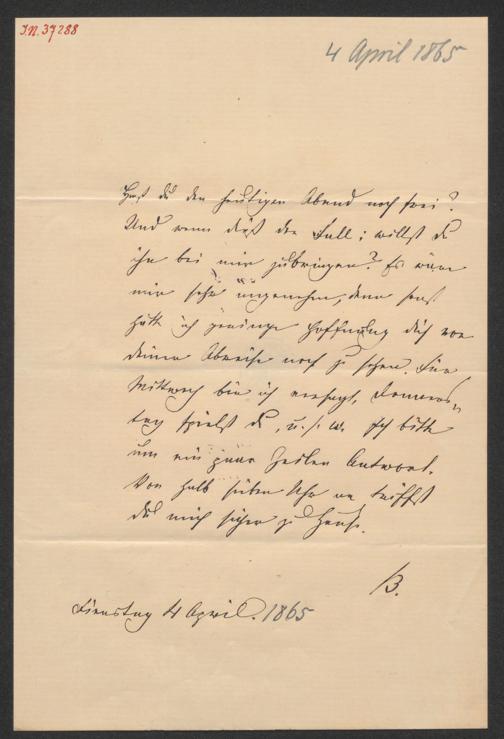 I.N. 37288
4 April 1865
Hast du den heutigen Abend noch frei?
Und wenn dieß der Fall; willst du
ihn bei mir zubringen? Es wäre
mir sehr angenehm, denn sonst
hätte ich geringe Hoffnung dich vor
deiner Abreise noch zu sehen. Für
Mittwoch bin ich versagt, Donners-
tag spielst du, u. s. w. Ich bitte
um ein paar Zeilen Antwort.
Von halb sieben Uhr an triffst
du mich sicher zu Hause.
B.
Dienstag 4 April. 1865